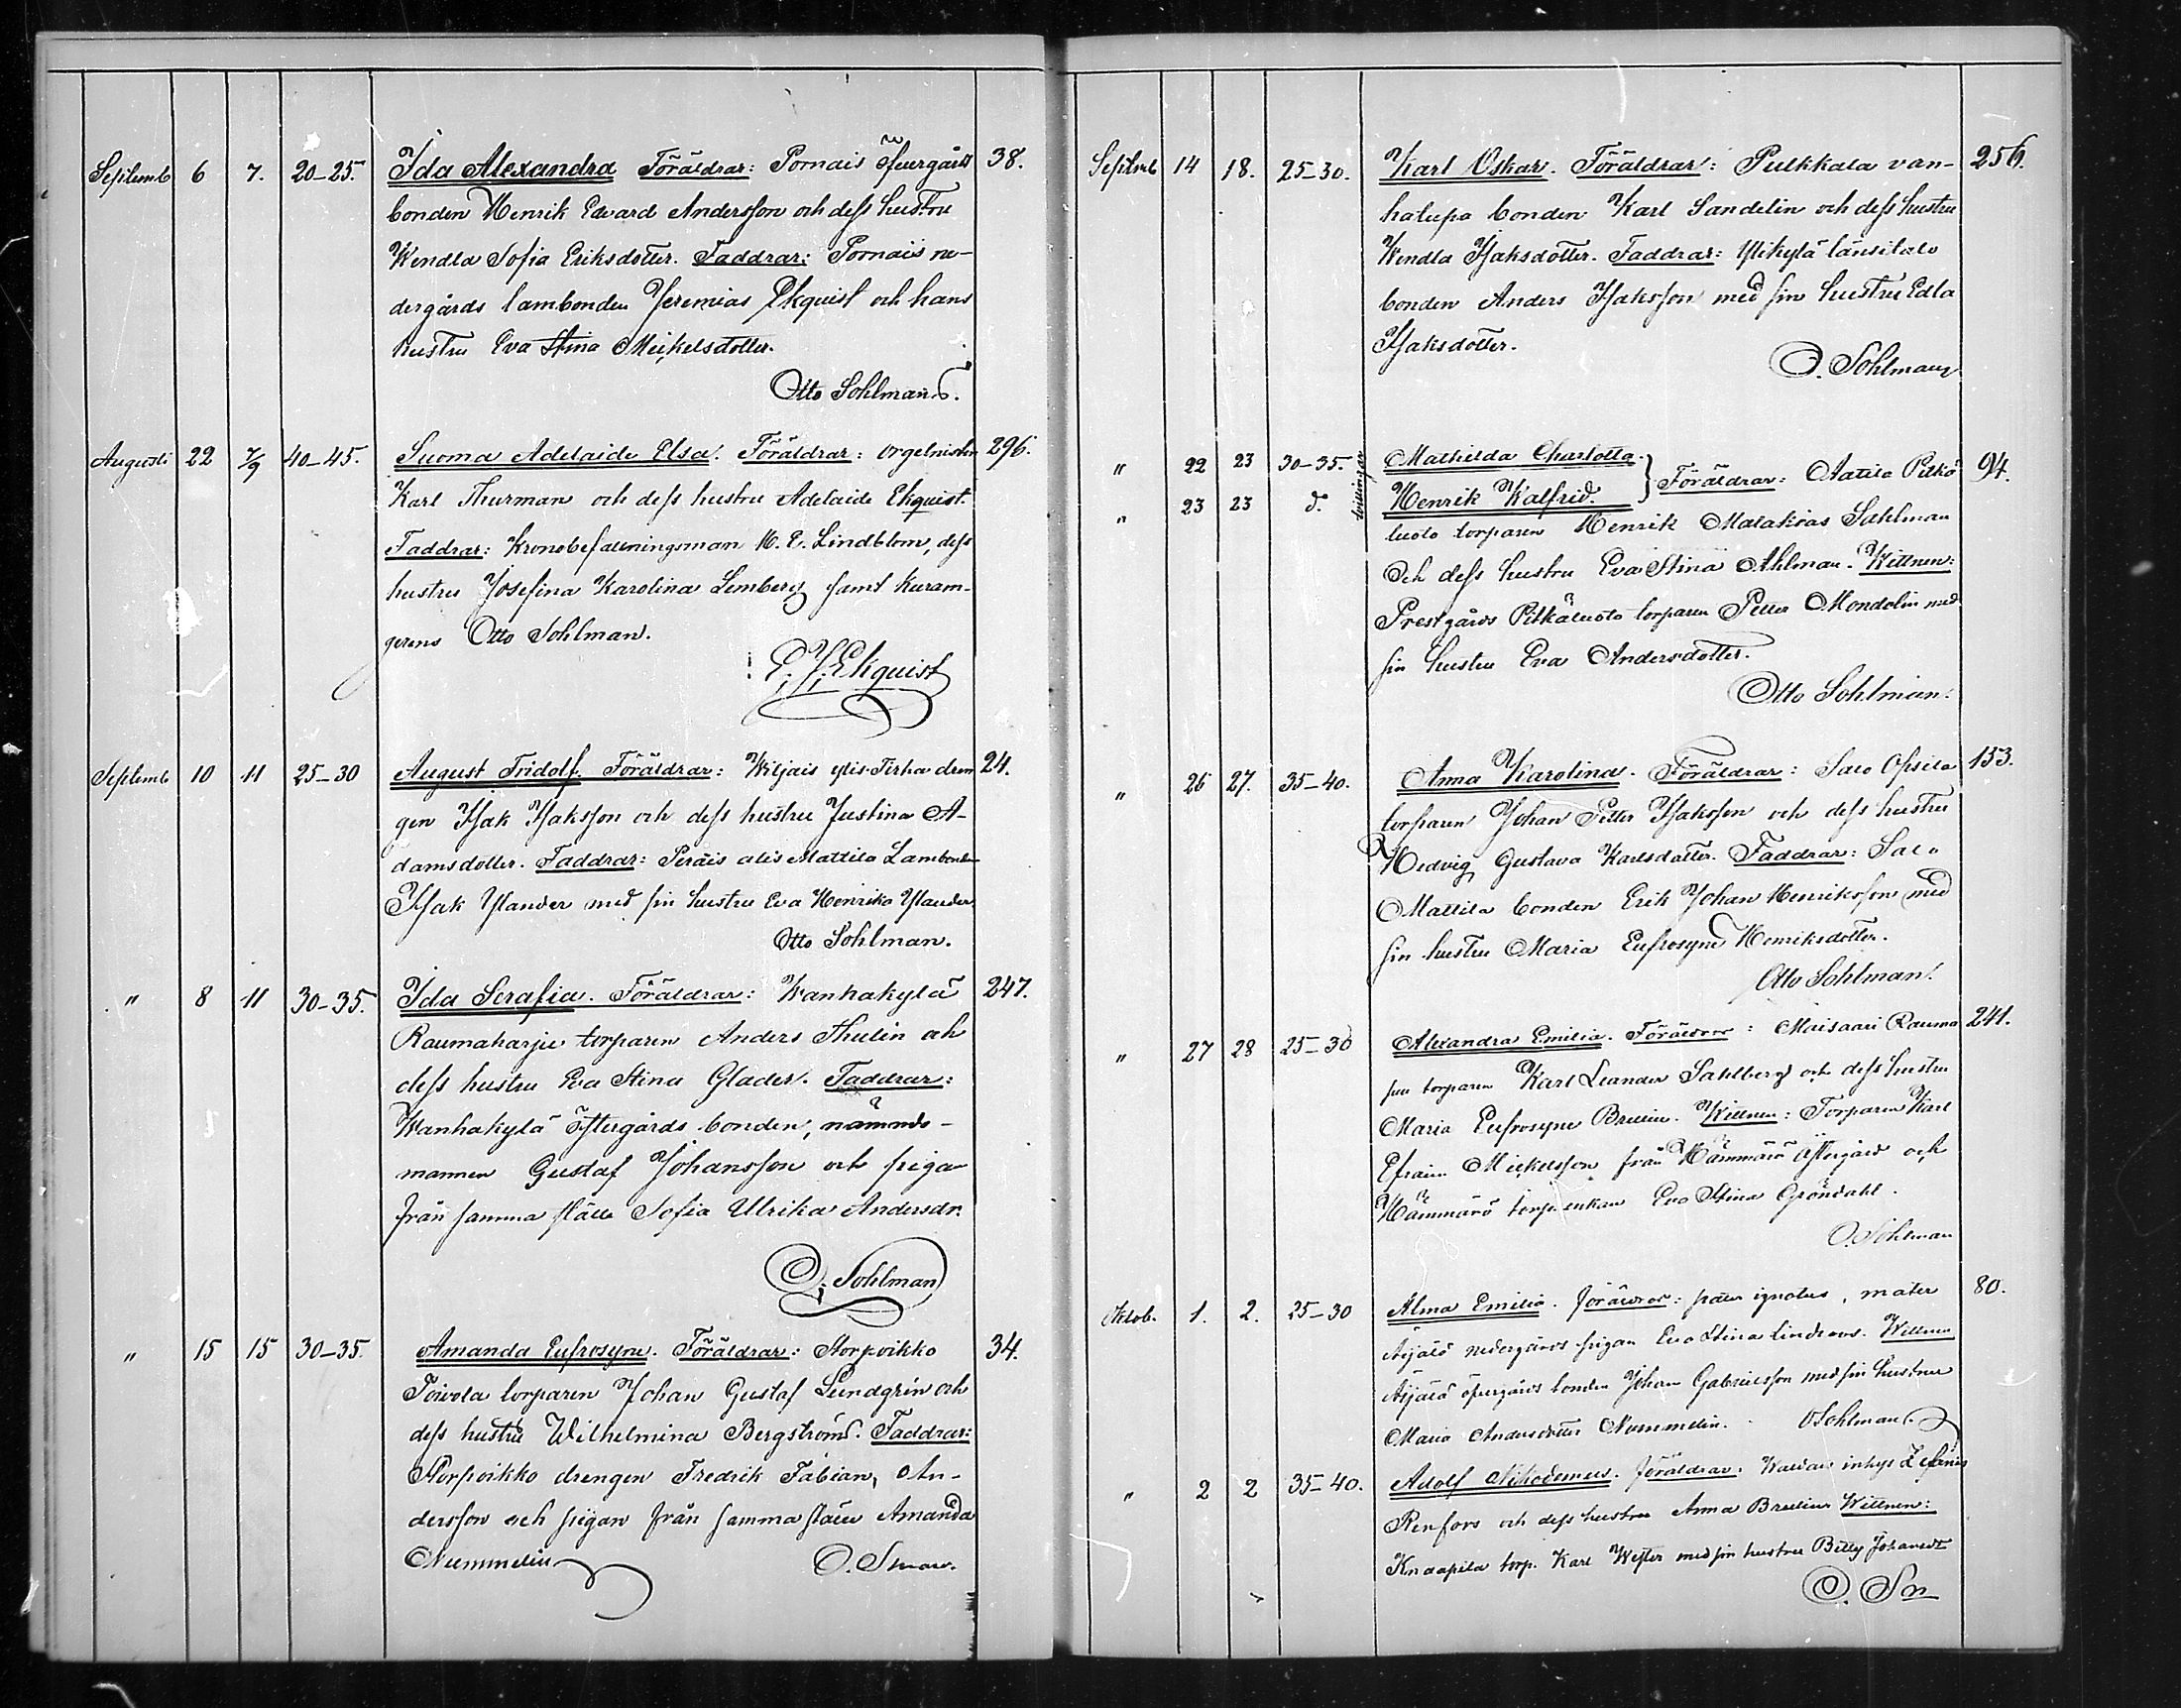 Septemb 6 7. 20-25. Ida Alexandra Föräldrar: Pornais öfvergårds 38.
bonden Henrik Edvard Andersson och dess hustru
Wendla Sofia Eriksdotter. Faddrar: Pornais ne-
dergårds lambonden Jeremias Ekquist och hans
hustru Eva Stina Mickelsdotter.
Otto Sohlman.
Augusti 22 7/9 40-45. Suoma Adelaide Elsa. Föräldrar: orgelnisten 296.
Karl Thurman och dess hustru Adelaide Ekquist.
Faddrar: Kronobefallningsman K. E. Lindblom, dess
hustru Josefina Karolina Lemberg samt kuram-
gerens Otto Sohlman.
E. J. Ekquist
Septemb 10 11 25-30 August Fridolf. Föräldrar: Wiljais ylis-Tirha dren 24.
gen Isak Isaksson och dess hustru Justina A-
damsdotter. Faddrar: Peräis alis Mattila Lambonden
Isak Ylander med sin hustru Eva Henrika Ylander.
Otto Sohlman.
" 8 11 30-35. Ida Serafia. Föräldrar: Wanhakylä 247.
Raumaharju torparen Anders Thulin och
dess hustru Eva Stina Glader. Faddrar:
Wanhakylä Östergårds bonden, nämnds-
mannen Gustaf Johansson och pigan
från samma ställe Sofia Ulrika Andersdr.
O. Sohlman
" 15 15 30-35. Amanda Eufrosyne. Föräldrar: Storpoikko 34.
Toivola torparen Johan Gustaf Lundgrén och
dess hustru Wilhelmina Bergström. Faddrar:
Storpoikko drengen Fredrik Fabian, An-
dersson och pigan från samma ställe Amanda
Nummelin O. Sman.
Septemb 14 18. 25-30. Karl Oskar. Föräldrar: Pulkkala van- 256.
halupa bonden Karl Sandelin och dess hustru
Wendla Isaksdotter. Faddrar: Ylikylä länsitalo
bonden Anders Isaksson med sin hustru Edla
Isaksdotter.
O. Sohlman
" 22 23 30-35. tvillingar Mathilda Charlotta.
" 23 23 d. Henrik Walfrid. } Föräldrar: Aatila Pitkä 94.
luoto torparen Henrik Malakias Sahlman
och dess hustru Eva Stina Ahlman. Wittnen:
Prestgårds Pitkäluoto torparen Petter Mondolin med
sin hustru Eva Andersdotter.
Otto Sohlman.
" 26 27. 35-40. Anna Karolina. Föräldrar: Salo Ossila 153.
torparen Johan Petter Isaksson och dess hustru
Hedvig Gustava Karlsdotter. Faddrar: Salo
Mattila bonden Erik Johan Henriksson med
sin hustru Maria Eufrosyne Henriksdotter.
Otto Sohlman.
" 27 28 25-30 Alexandra Emilia. Föräldrar: Maisaari Rauma 241.
torparen Karl Leander Sahlberg och dess hustru
Maria Eufrosyne Brulin. Wittnen: Torparen Karl
Efraim Mickelsson från Hämmärö Östergård och
Hämmärö torp.enkan Eva Stina Gröndahl.
O. Sohlman
Oktob. 1. 2. 25-30 Alma Emilia. Föräldrar: pater ignotus, mater 80.
Äijälö nedergårds pigan Eva Stina Lindroos. Wittnen
Äijälö öfvergårds bonden Johan Gabrielsson med sin hustru
Maria Andersdotter Nummelin. O Sohlman.
" 2 2 35-40. Adolf Nikodemus. Föräldrar: inhys
Renfors och dess hustru Anna Brulin Wittnen:
Knaapila torp. Karl Wester med sin hustru Johansdr
O. Sn